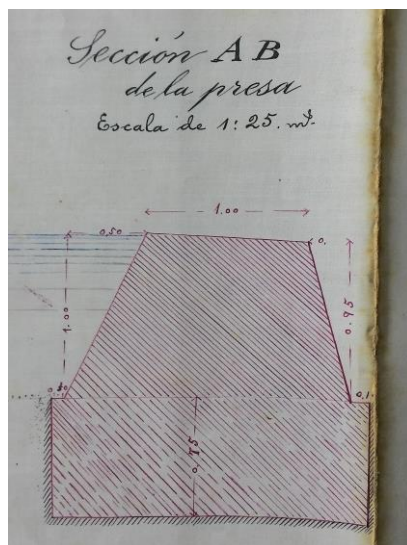 Sección A B
de la presa
Escala de 1:25. m.
1.00
0,50
0,
1.00
0.95
0,10
0,1
0.75